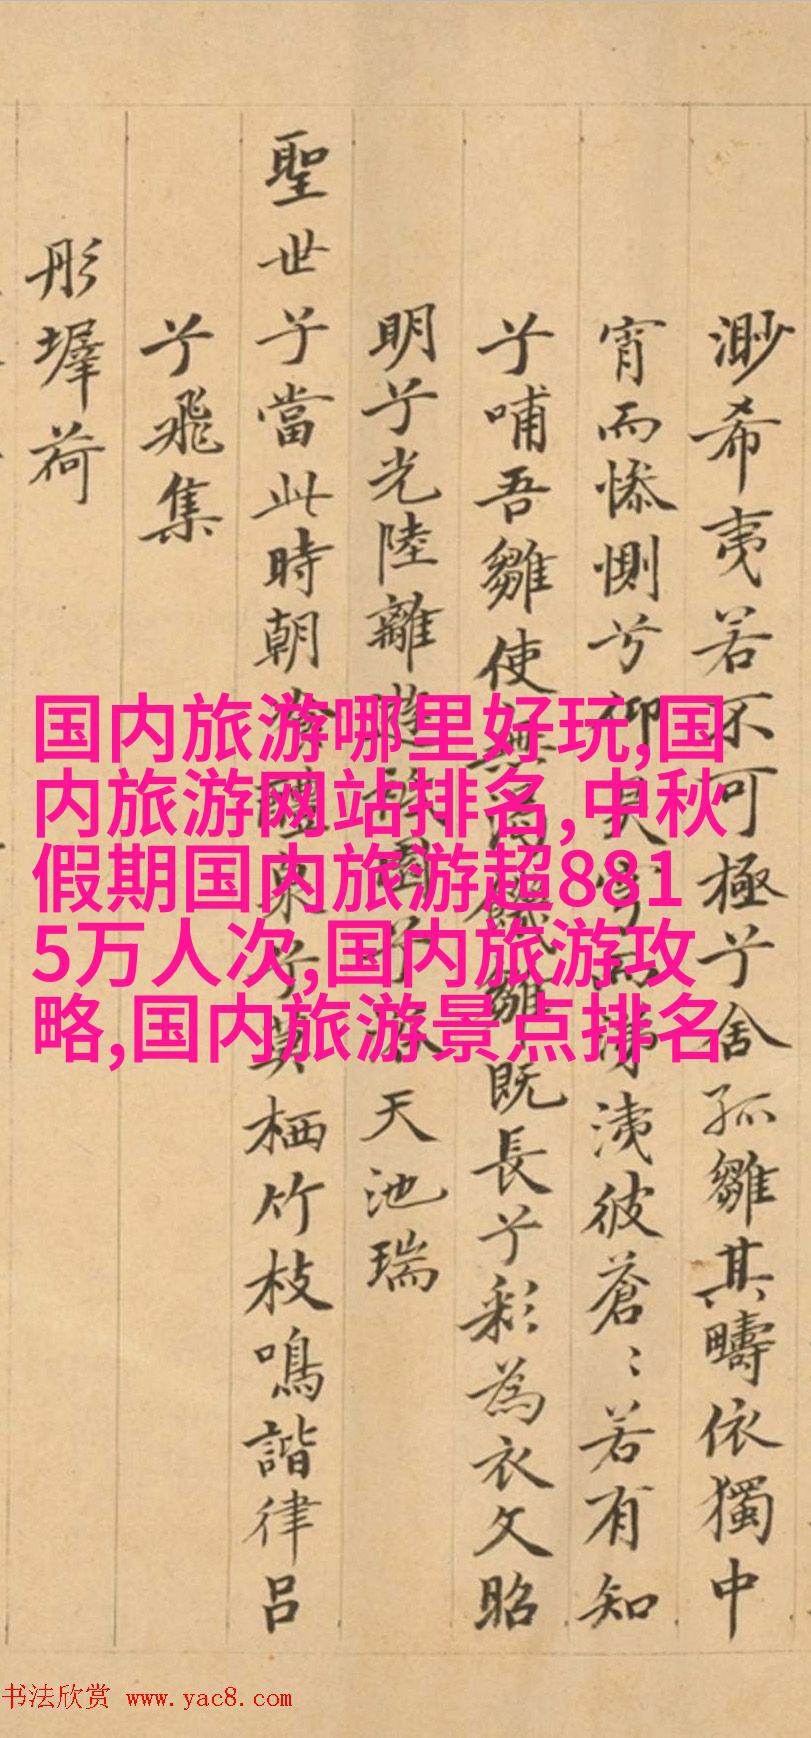 渺希夷若不可極兮舍孤雛其疇依獨中
宵而惨惻兮仰穹而涕洟彼蒼〻若有知
兮哺吾雛使無雛既長兮彩為衣文昭
明兮光陸離遊兮天池瑞
聖世兮當此時朝醴泉兮莫栖竹枝鳴諧律呂
兮飛集
彤墀荷
国内旅游哪里好玩,国
内旅游网站排名,中秋
假期国内旅游超881
5万人次,国内旅游攻
略,国内旅游景点排名
书法欣赏 www.yac8.com